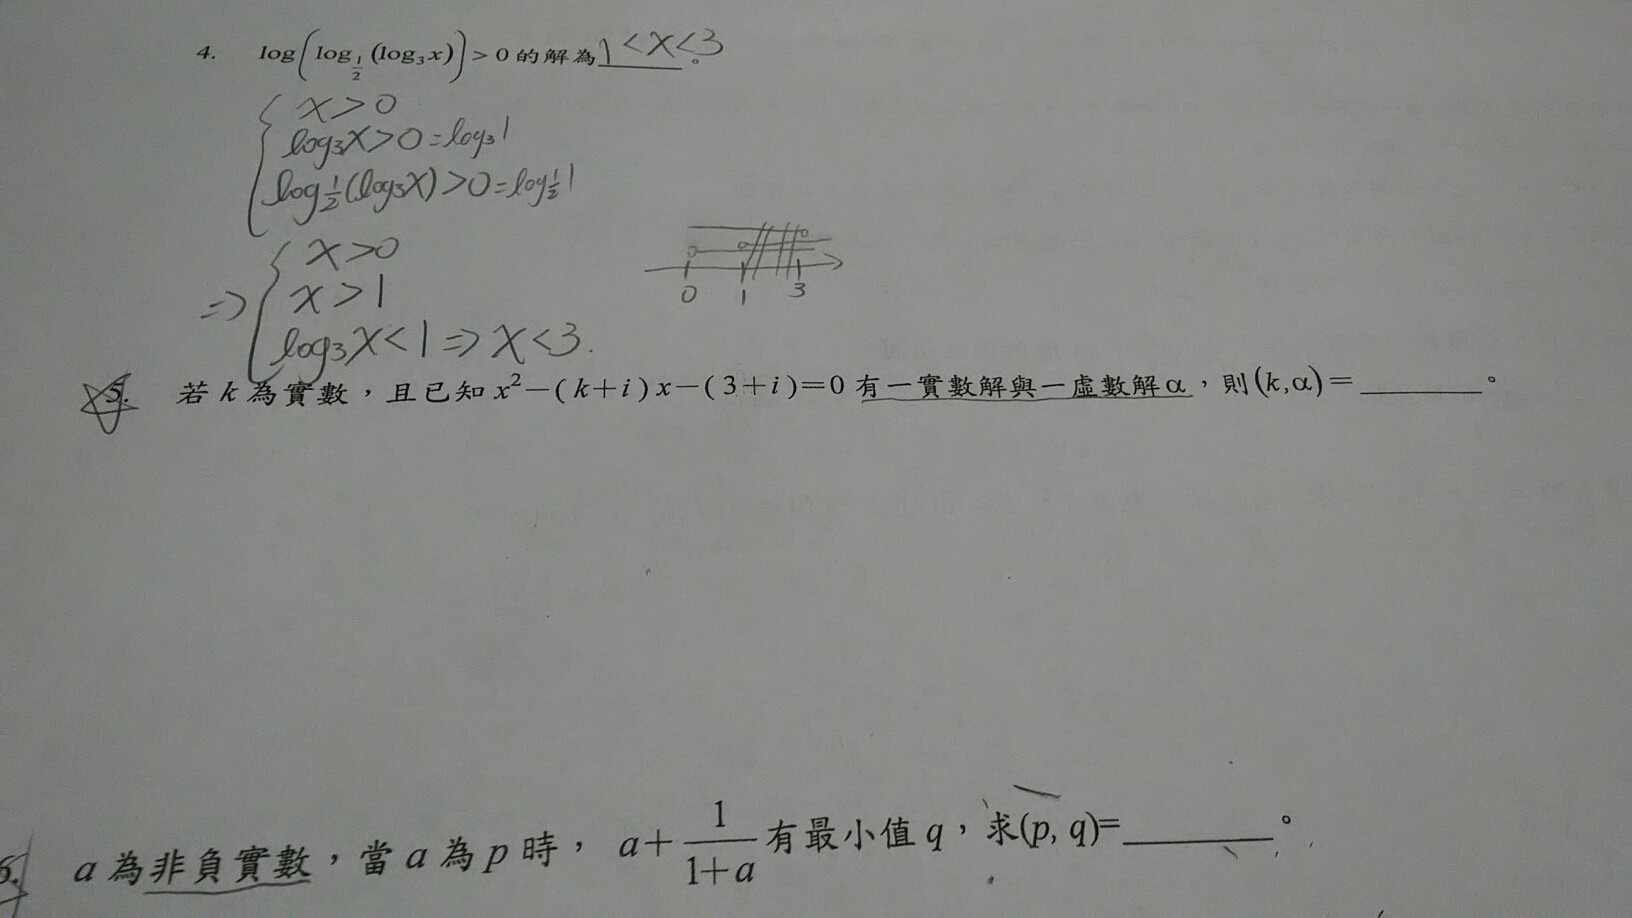 4. log(log_{1/2}(log₃x))>0的解為 1<x<3。
x>0
log₃x>0=log₃1
log_{1/2}(log₃x)>0=log_{1/2}1
x>0
⇒ x>1
log₃x<1⇒x<3.
0 1 3
5. 若k為實數,且已知x²-(k+i)x-(3+i)=0有一實數解與一虛數解α,則(k,α)=______。
6. a為非負實數,當a為p時,a+\frac{1}{1+a}有最小值q,求(p, q)=______。